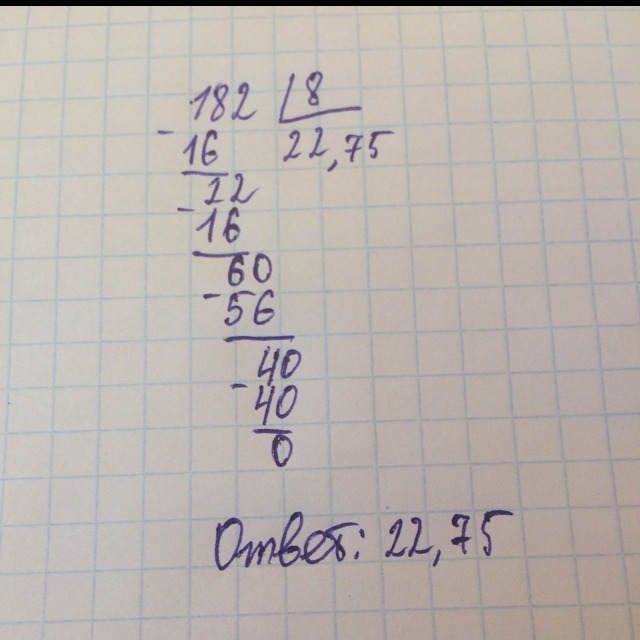 182 8
- 16 22,75
22
- 16
60
- 56
40
- 40
0
Ответ: 22,75